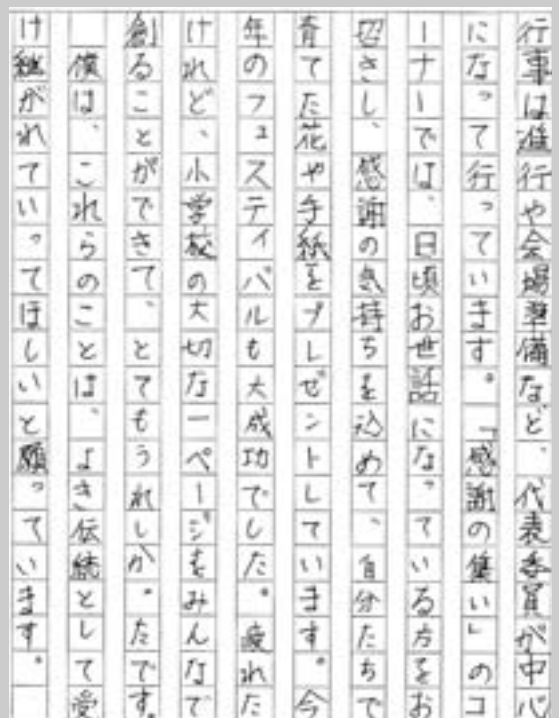 行事は進行や会場準備など、代表委員が中心
になって行っています。「感謝の集い」のコ
ーナーでは、日頃お世話になっている方をお
招きし、感謝の気持ちを込めて、自分たちで
育てた花や手紙をプレゼントしています。今
年のフェスティバルも大成功でした。疲れた
けれど、小学校の大切な一ページをみんなで
創ることができて、とてもうれしかったです。
僕は、これらのことは、よき伝統として受
け継がれていってほしいと願っています。